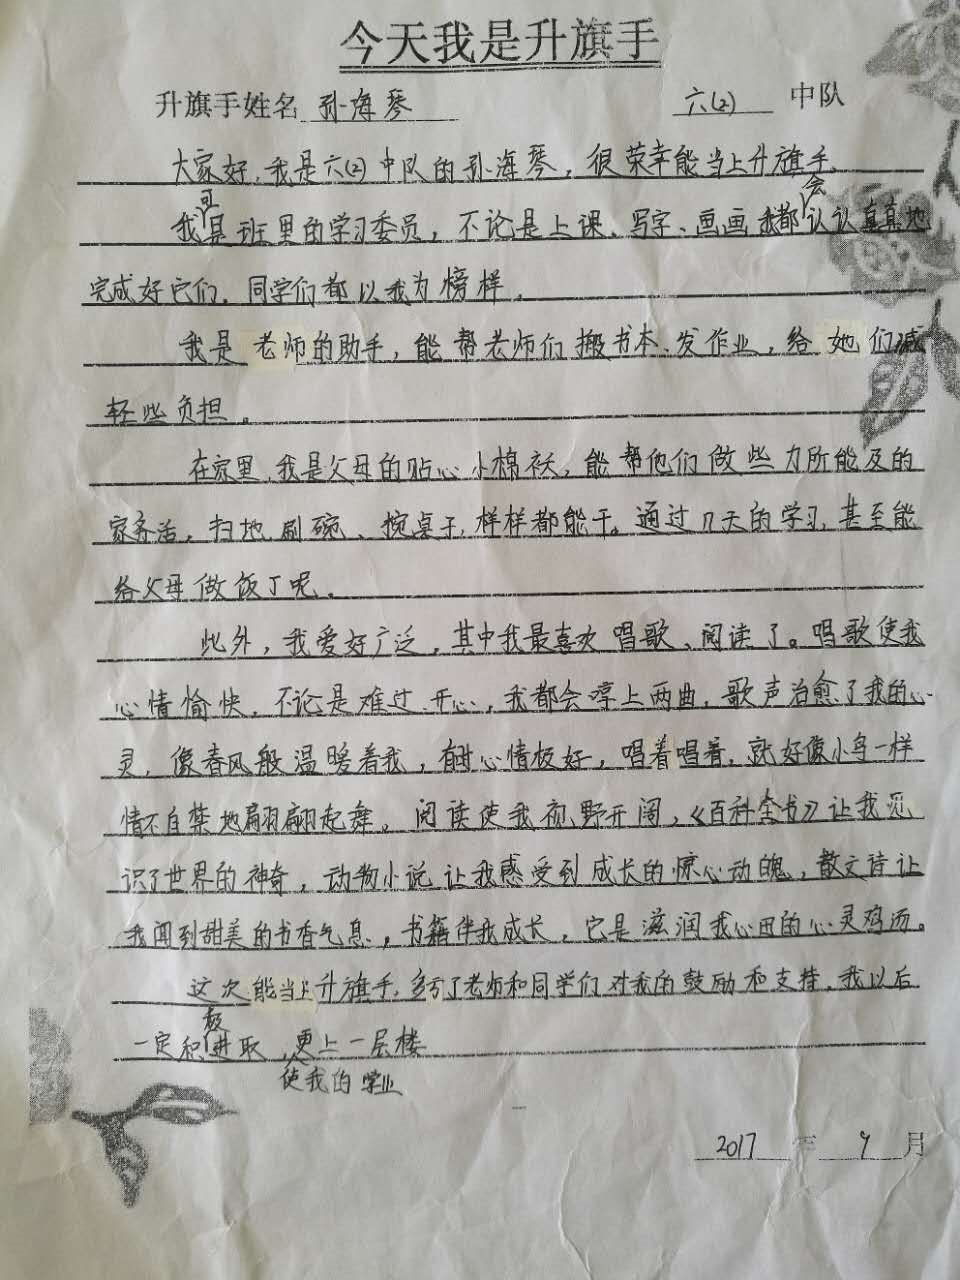 今天我是升旗手
升旗手姓名 孙海琴 六(2) 中队
大家好,我是六(2)中队的孙海琴，很荣幸能当上升旗手。
我可是班里的学习委员，不论是上课、写字、画画我都会认认真真地
完成好它们。同学们都以我为榜样。
我是老师的助手，能帮老师们搬书本、发作业，给她们减
轻些负担。
在家里,我是父母的贴心小棉袄，能帮他们做些力所能及的
家务活，扫地、刷碗、搅桌子,样样都能干。通过几天的学习,甚至能
给父母做饭了呢。
此外，我爱好广泛，其中我最喜欢唱歌、阅读了。唱歌使我
心情愉快，不论是难过、开心，我都会哼上两曲，歌声治愈了我的心
灵，像春风般温暖着我，有时心情极好，唱着唱着，就好像小鸟一样
情不自禁地翩翩起舞。阅读使我视野开阔，《百科全书》让我见
识了世界的神奇，动物小说让我感受到成长的惊心动魄，散文诗让
我闻到甜美的书香气息，书籍伴我成长，它是滋润我心田的心灵鸡汤。
这次能当上升旗手，多亏了老师和同学们对我的鼓励和支持，我以后
一定积极进取，使我的学业更上一层楼
2017 年 9 月